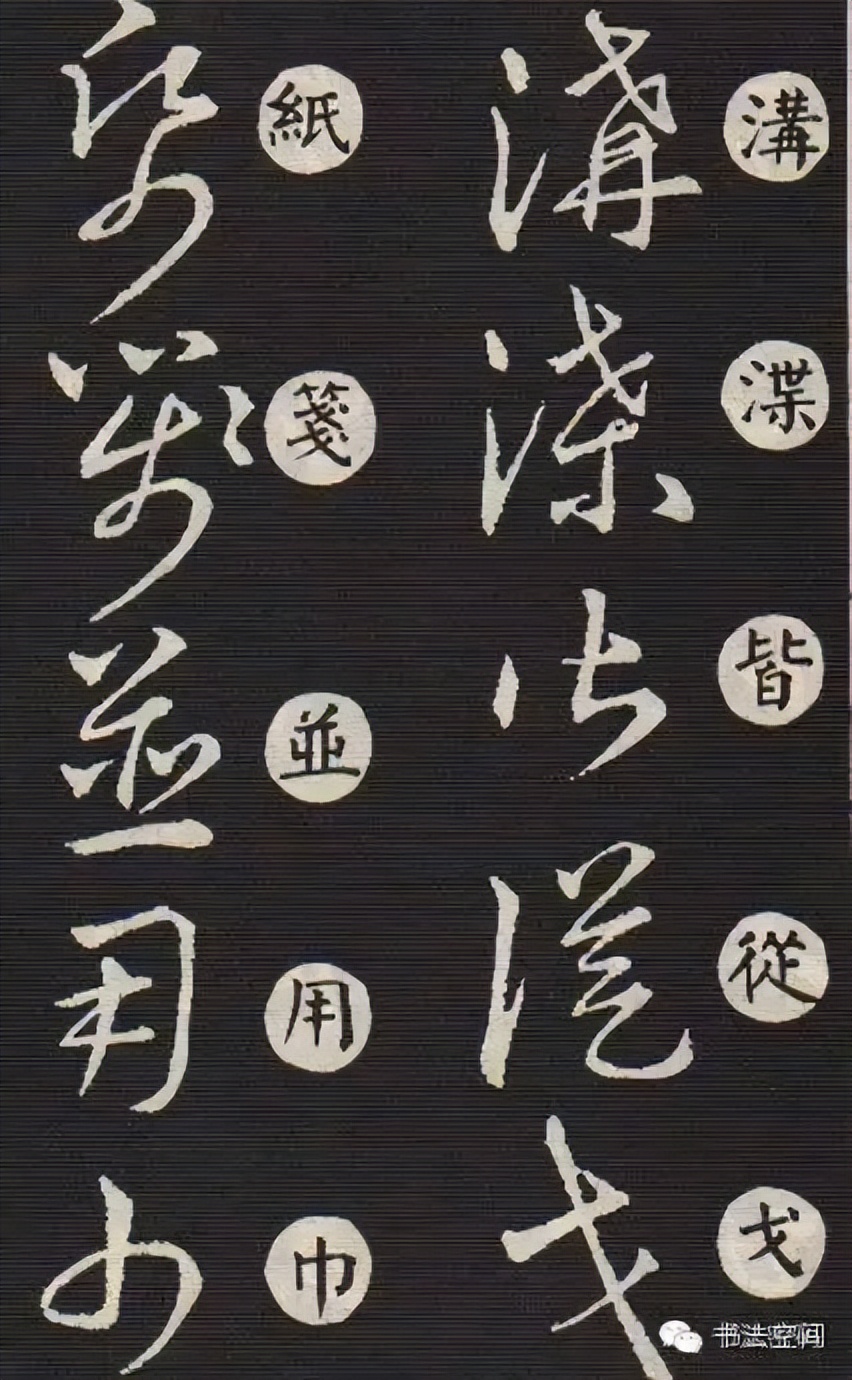 溝渫皆從戈
紙箋並用巾
书法空间